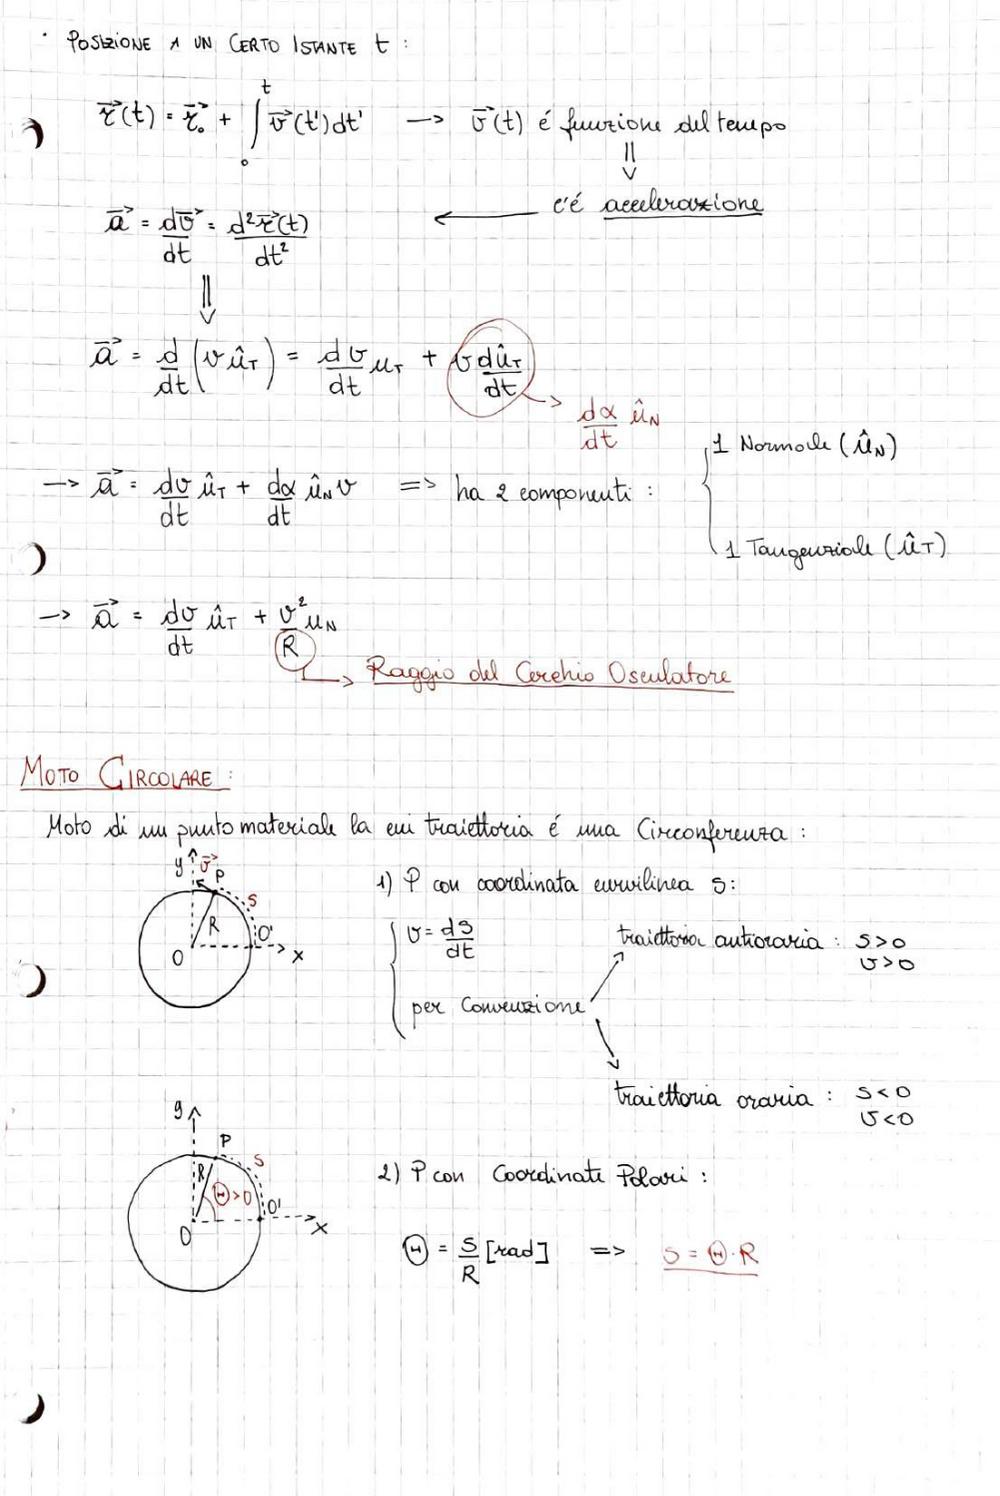 · POSIZIONE A UN CERTO ISTANTE t :
r⃗(t) = r⃗₀ + ∫₀ᵗ v⃗(t')dt' —> v⃗(t) é funzione del tempo
⇓
a⃗ = dv⃗/dt = d²r⃗(t)/dt² <— c'é accelerazione
⇓
a⃗ = d/dt (v û_T) = dv/dt u_T + v dû_T/dt
—> dα/dt û_N
—> a⃗ = dv/dt û_T + dα/dt û_N v => ha 2 componenti : { 1 Normale (û_N)
1 Tangenziale (û_T)
—> a⃗ = dv/dt û_T + v²/R u_N
—> Raggio del Cerchio Osculatore
MOTO CIRCOLARE :
Moto di un punto materiale la cui traiettoria é una Circonferenza :
y v⃗ P s R O' O x
1) P con coordinata curvilinea s:
{ v = ds/dt
traiettoria antioraria : s>0
v>0
per Convenzione
traiettoria oraria : s<0
v<0
y P s R Θ>0 O' O x
2) P con Coordinate Polari :
Θ = s/R [rad] => s = Θ·R